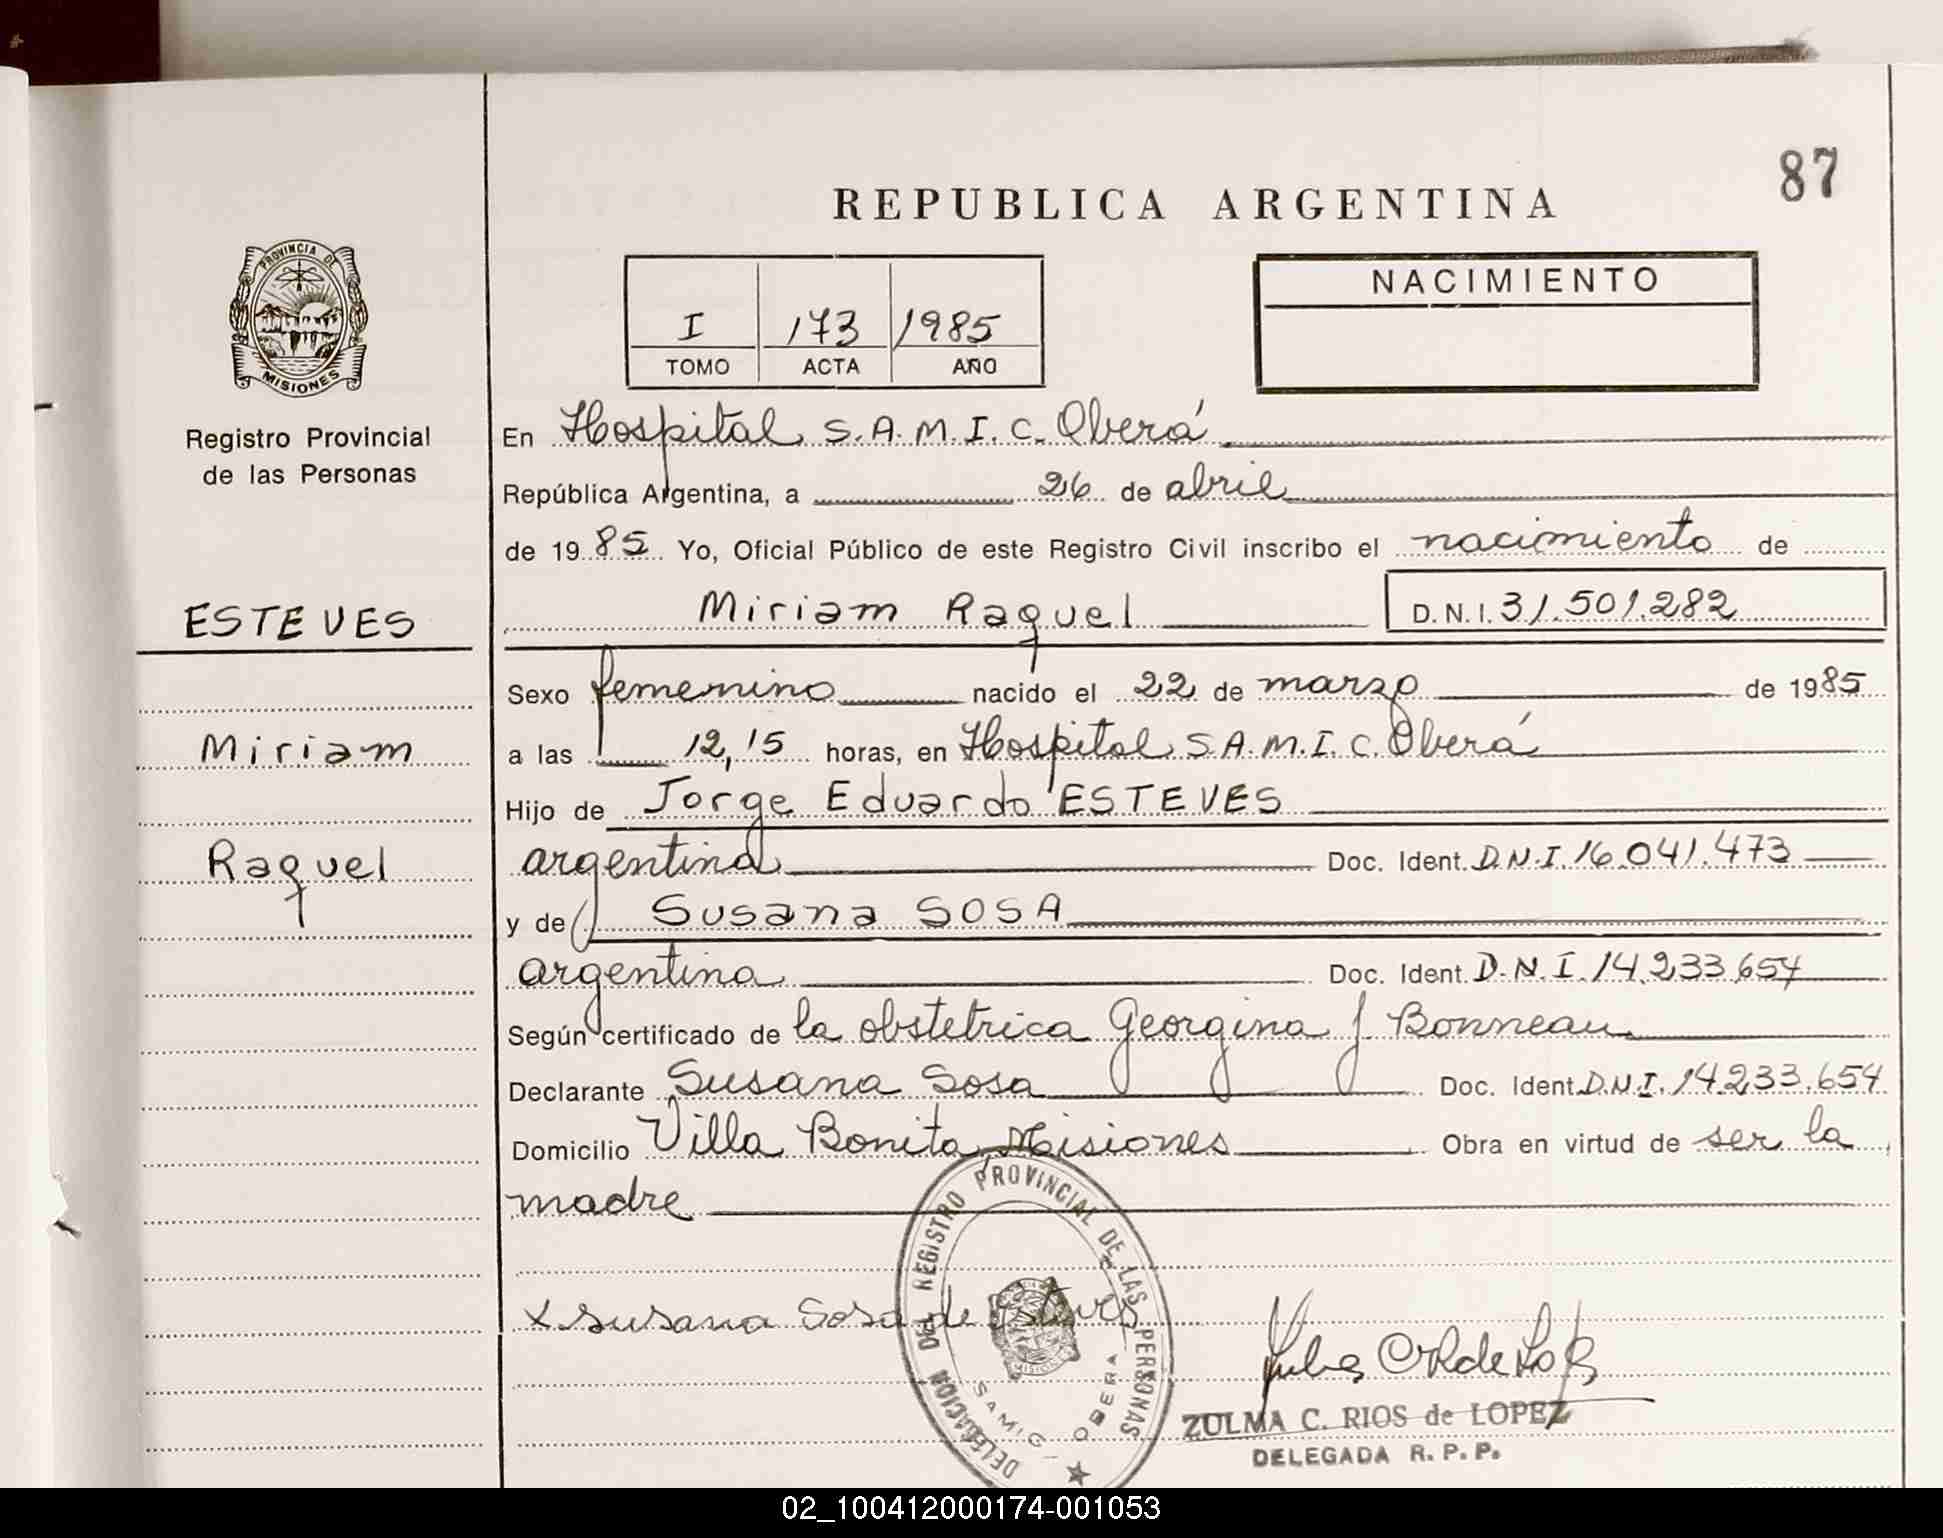 87
REPUBLICA ARGENTINA
PROVINCIA DE
MISIONES
NACIMIENTO
I 173 1985
TOMO ACTA AÑO
Registro Provincial
de las Personas
ESTEVES
Miriam
Raquel
En Hospital S.A.M.I.C. Oberá
República Argentina, a 26 de abril
de 1985 Yo, Oficial Público de este Registro Civil inscribo el nacimiento de
Miriam Raquel D.N.I. 31.501.282
Sexo femenino nacido el 22 de marzo de 1985
a las 12,15 horas, en Hospital S.A.M.I.C. Oberá
Hijo de Jorge Eduardo ESTEVES
argentina Doc. Ident. D.N.I. 16.041.473
y de Susana SOSA
argentina Doc. Ident. D.N.I. 14.233.654
Según certificado de la obstetrica Georgina J Bonneau
Declarante Susana Sosa Doc. Ident. D.N.I. 14.233.654
Domicilio Villa Bonita, Misiones Obra en virtud de ser la
madre
DELEGACION DEL REGISTRO PROVINCIAL DE LAS PERSONAS
OBERA
x Susana Sosa de Esteves
ZULMA C. RIOS de LOPEZ
DELEGADA R. P. P.
02_100412000174-001053